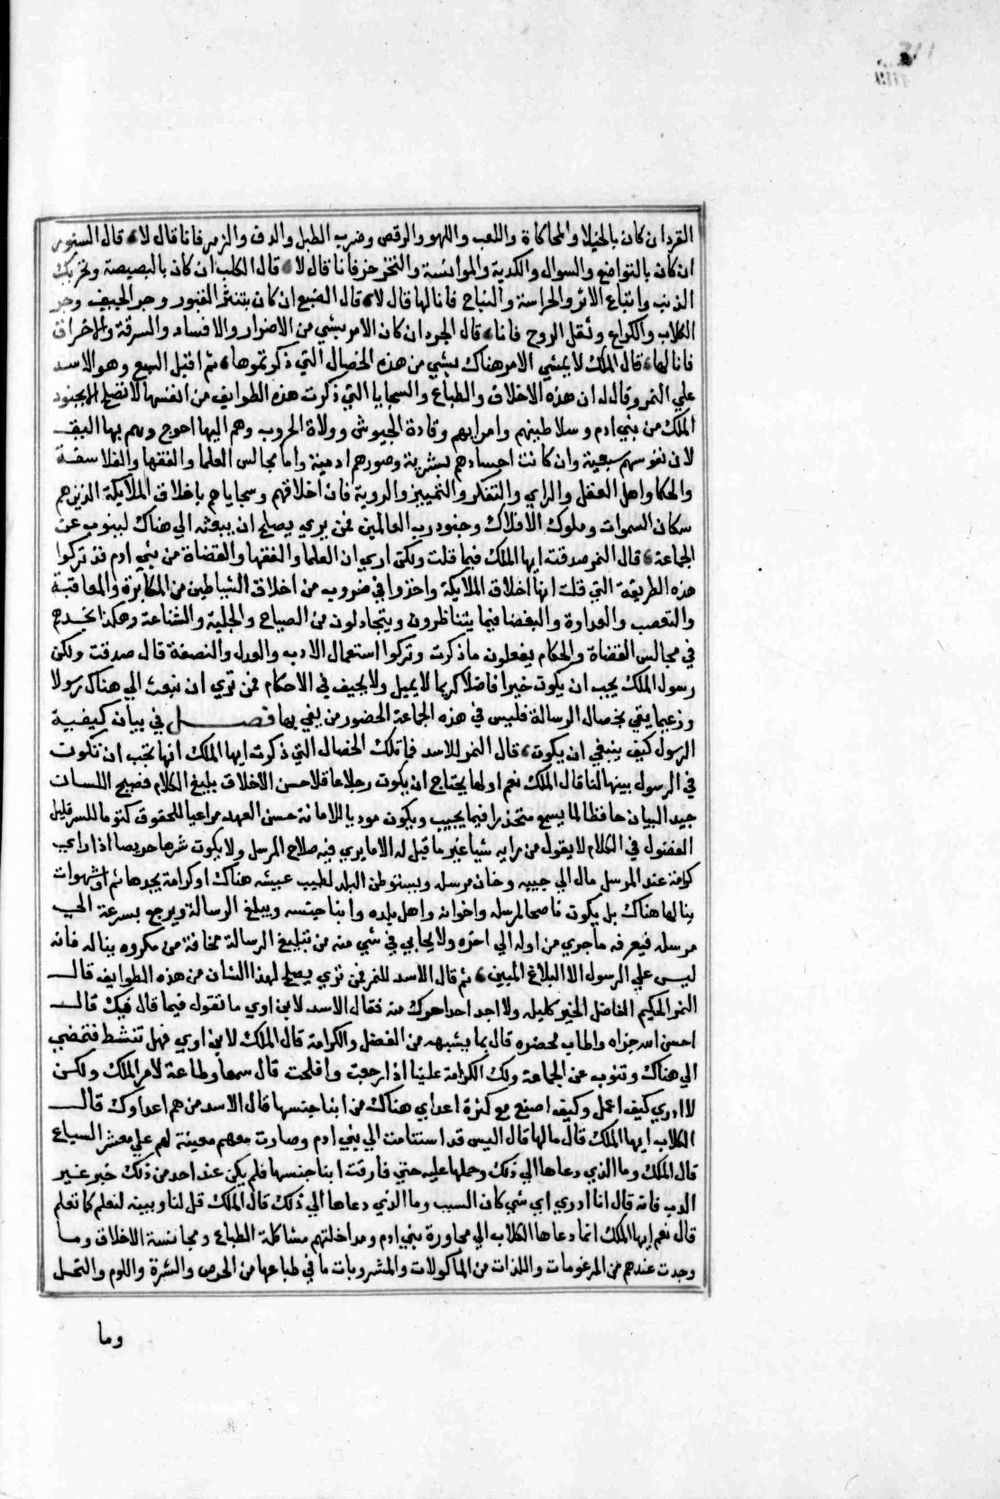 القرد ان كان بالخيلا والمحاكاة واللعب واللهو والرقص وضرب الطبل والدف والزمر فانا قال لا، قال السنور
ان كان بالتواضع والسوال والكدية والموانسة والتخرخز فانا قال لا، قال الكلب ان كان بالبصبصة وتحريك
الذنب واتباع الاثر والحراسة والنباح فانا لها قال لا، قال الضبع ان كان بنبش القبور وجر الجيف وجر
الكلاب والكراع وثقل الروح فانا، قال الجرد ان كان الامر بشي من الاضرار والافساد والسرقة والاحراق
فانا لها، قال الملك لا يمشي الامر هناك بشي من هذه الخصال التي ذكرتموها، ثم اقبل السبع وهو الاسد
علي النمر وقال له ان هذه الاخلاق والطباع والسجايا التي ذكرت هذه الطوايف من انفسها لا تصلح الا لجنود
الملك من بني ادم وسلاطينهم وامرايهم وقادة الجيوش وولاة الحروب وهم اليها احوج وهم بها اليق
لان نفوسهم سبعية وان كانت اجسادهم بشرية وصورهم ادمية واما مجالس العلما والفقها والفلاسفة
والحكما واهل العقل والراي والتفكر والتمييز والروية فان اخلاقهم وسجاياهم باخلاق الملايكة الذين هم
سكان السموات وملوك الافلاك وجنود رب العالمين فمن يري يصلح ان يبعثه الي هناك لينوب عن
الجماعة، قال النمر صدقت ايها الملك فيما قلت ولكن اري ان العلما والفقها والقضاة من بني ادم قد تركوا
هذه الطريقة التي قلت انها اخلاق الملايكة واخذوا في ضروب من اخلاق الشياطين من المكابرة والمعاقبة
والتعصب والعداوة والبغضا فيما يتناظرون ويتجادلون من الصياح والجلبة والشناعة وهكذا نجدهم
في مجالس القضاة والحكام يفعلون ما ذكرت وتركوا استعمال الادب والعدل والنصفة قال صدقت ولكن
رسول الملك يجب ان يكون خيرا فاضلا كريما لا يميل ولا يحيف في الاحكام فمن تري ان نبعث الي هناك رسولا
وزعيما يفي بخصال الرسالة فليس في هذه الجماعة الحضور من يفي بها فصل في بيان كيفية
الرسول كيف ينبغي ان يكون، قال النمر للاسد فما تلك الخصال التي ذكرت ايها الملك انها تجب ان تكون
في الرسول بينها لنا قال الملك نعم اولها يحتاج ان يكون رجلا عاقلا حسن الاخلاق بليغ الكلام فصيح اللسان
جيد البيان حافظا لما يسمع متحذرا فيما يجيب ويكون موديا للامانة حسن العهد مراعيا للحقوق كتوما للسر قليل
الفضول في الكلام لا يقول من رايه شيا غير ما قيل له الا ما يري فيه صلاح المرسل ولا يكون شرها حريصا اذا راي
كرامة عند المرسل مال الي جيبه وخان مرسله ويستوطن البلد لطيب عيشه هناك او كرامة يجدها ثم او شهوات
ينالها هناك بل يكون ناصحا لمرسله واخوانه واهل بلده وابنا جنسه ويبلغ الرسالة ويرجع بسرعة الي
مرسله فيعرفه ما جري من اوله الي اخره ولا يحابي في شي منه من تبليغ الرسالة مخافة من مكروه يناله فانه
ليس علي الرسول الا البلاغ المبين، ثم قال الاسد للنمر فمن تري يصلح لهذا الشان من هذه الطوايف قال
النمر الحكيم الفاضل الخير كليله ولا اجد احدا حوك منه فقال الاسد لابن اوي ما تقول فيما قال فيك قال
احسن الله جزاه واطاب محضره قال بما يشبهه من الفضل والكرامة قال الملك لابن اوي فهل تنشط فتمضي
الي هناك وتنوب عن الجماعة ولك الكرامة علينا اذا رجعت وافلحت قال سمعا وطاعة لامر الملك ولكن
لا ادري كيف اعمل وكيف اصنع مع كثرة اعداي هناك من ابنا جنسها قال الاسد من هم اعداوك قال
الكلاب ايها الملك قال ما لها قال اليس قد استنامت الي بني ادم وصارت معهم معينة لهم علي معشر السباع
قال الملك وما الذي دعاها الي ذلك وحملها عليه حتي فارقت ابنا جنسها فلم يكن عند احد من ذلك خبر غير
الدب فانه قال انا ادري اي شي كان السبب وما الذي دعاها الي ذلك قال الملك قل لنا وبينه لنعلم كما تعلم
قال نعم ايها الملك انما دعاها الكلاب الي مجاورة بني ادم ومداخلتهم مشاكلة الطباع ومجانسة الاخلاق وما
وجدت عندهم من المرغوبات واللذات من الماكولات والمشروبات ما في طباعها من الحرص والشرة واللوم والبخل
وما